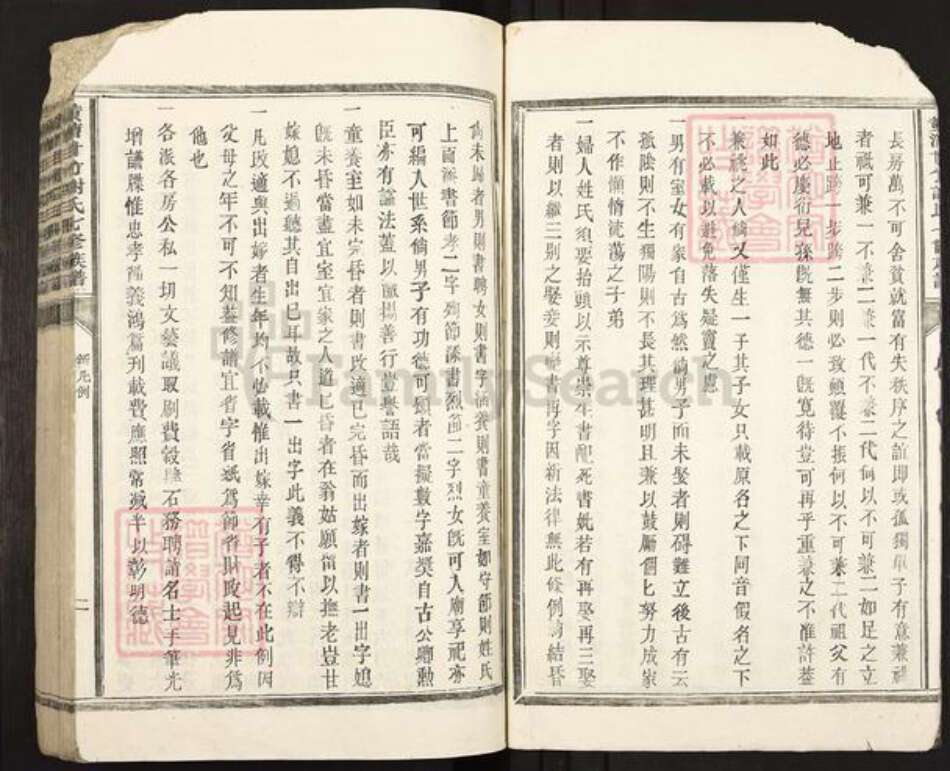 長房萬不可舍貧就富有失秩序之誼即或孤獨單子有意兼祧
者祗可兼一不兼二兼一代不兼二代何以不可兼二如足之立
地止跨一步跨二步則必致傾覆不振何以不可兼二代祖父有
德必慶衍兒孫旣無其德一旣寬待豈可再乎重兼之不准許葢
如此
一兼祧之人倘又僅生一子其子女只載原名之下同音假名之下
不必載以避免落失疑賣之患
一男有室女有家自古爲然倘男子而未娶者則碍難立後古有云
孤陰則不生獨陽則不長其理甚明且兼以鼓勵個匕努力成家
不作懶惰流蕩之子弟
一婦人姓氏須要抬頭以示尊崇生書配死書妣若有再娶再三娶
者則以繼三別之娶妾則變書再字因新法律無此條例 結昏
尚未歸者男則書聘女則書字 養則書童養室如守節則姓氏
上面添書節孝二字 節添書烈節二字烈女旣可入廟享祀亦
可編入世系倘男子有功德可頌者當擬數字嘉奬自古公 勲
臣亦有諡法葢以 揚善行豈譽語哉
一童養室如未完昏者則書改適已完昏而出嫁者則書一出字媳
旣未昏當盡宜室宜家之人道已昏者在翁姑願留以撫老豈甘
嫁媳不過聽其自出已耳故只書一出字此義不得不辯
一凡改適與出嫁者生年均不必載惟出嫁幸有子者不在此例因
父母之年不可不知葢修譜宜省字省紙爲節省財政起見非爲
他也
一各派各房公私一切文藝議取刷費穀 石務聘請名士手筆光
增譜牒惟忠孝 義鴻篇刊載費應照常減半以彰明德
竹謝氏七修族譜
新凡例
二
FamilySearch